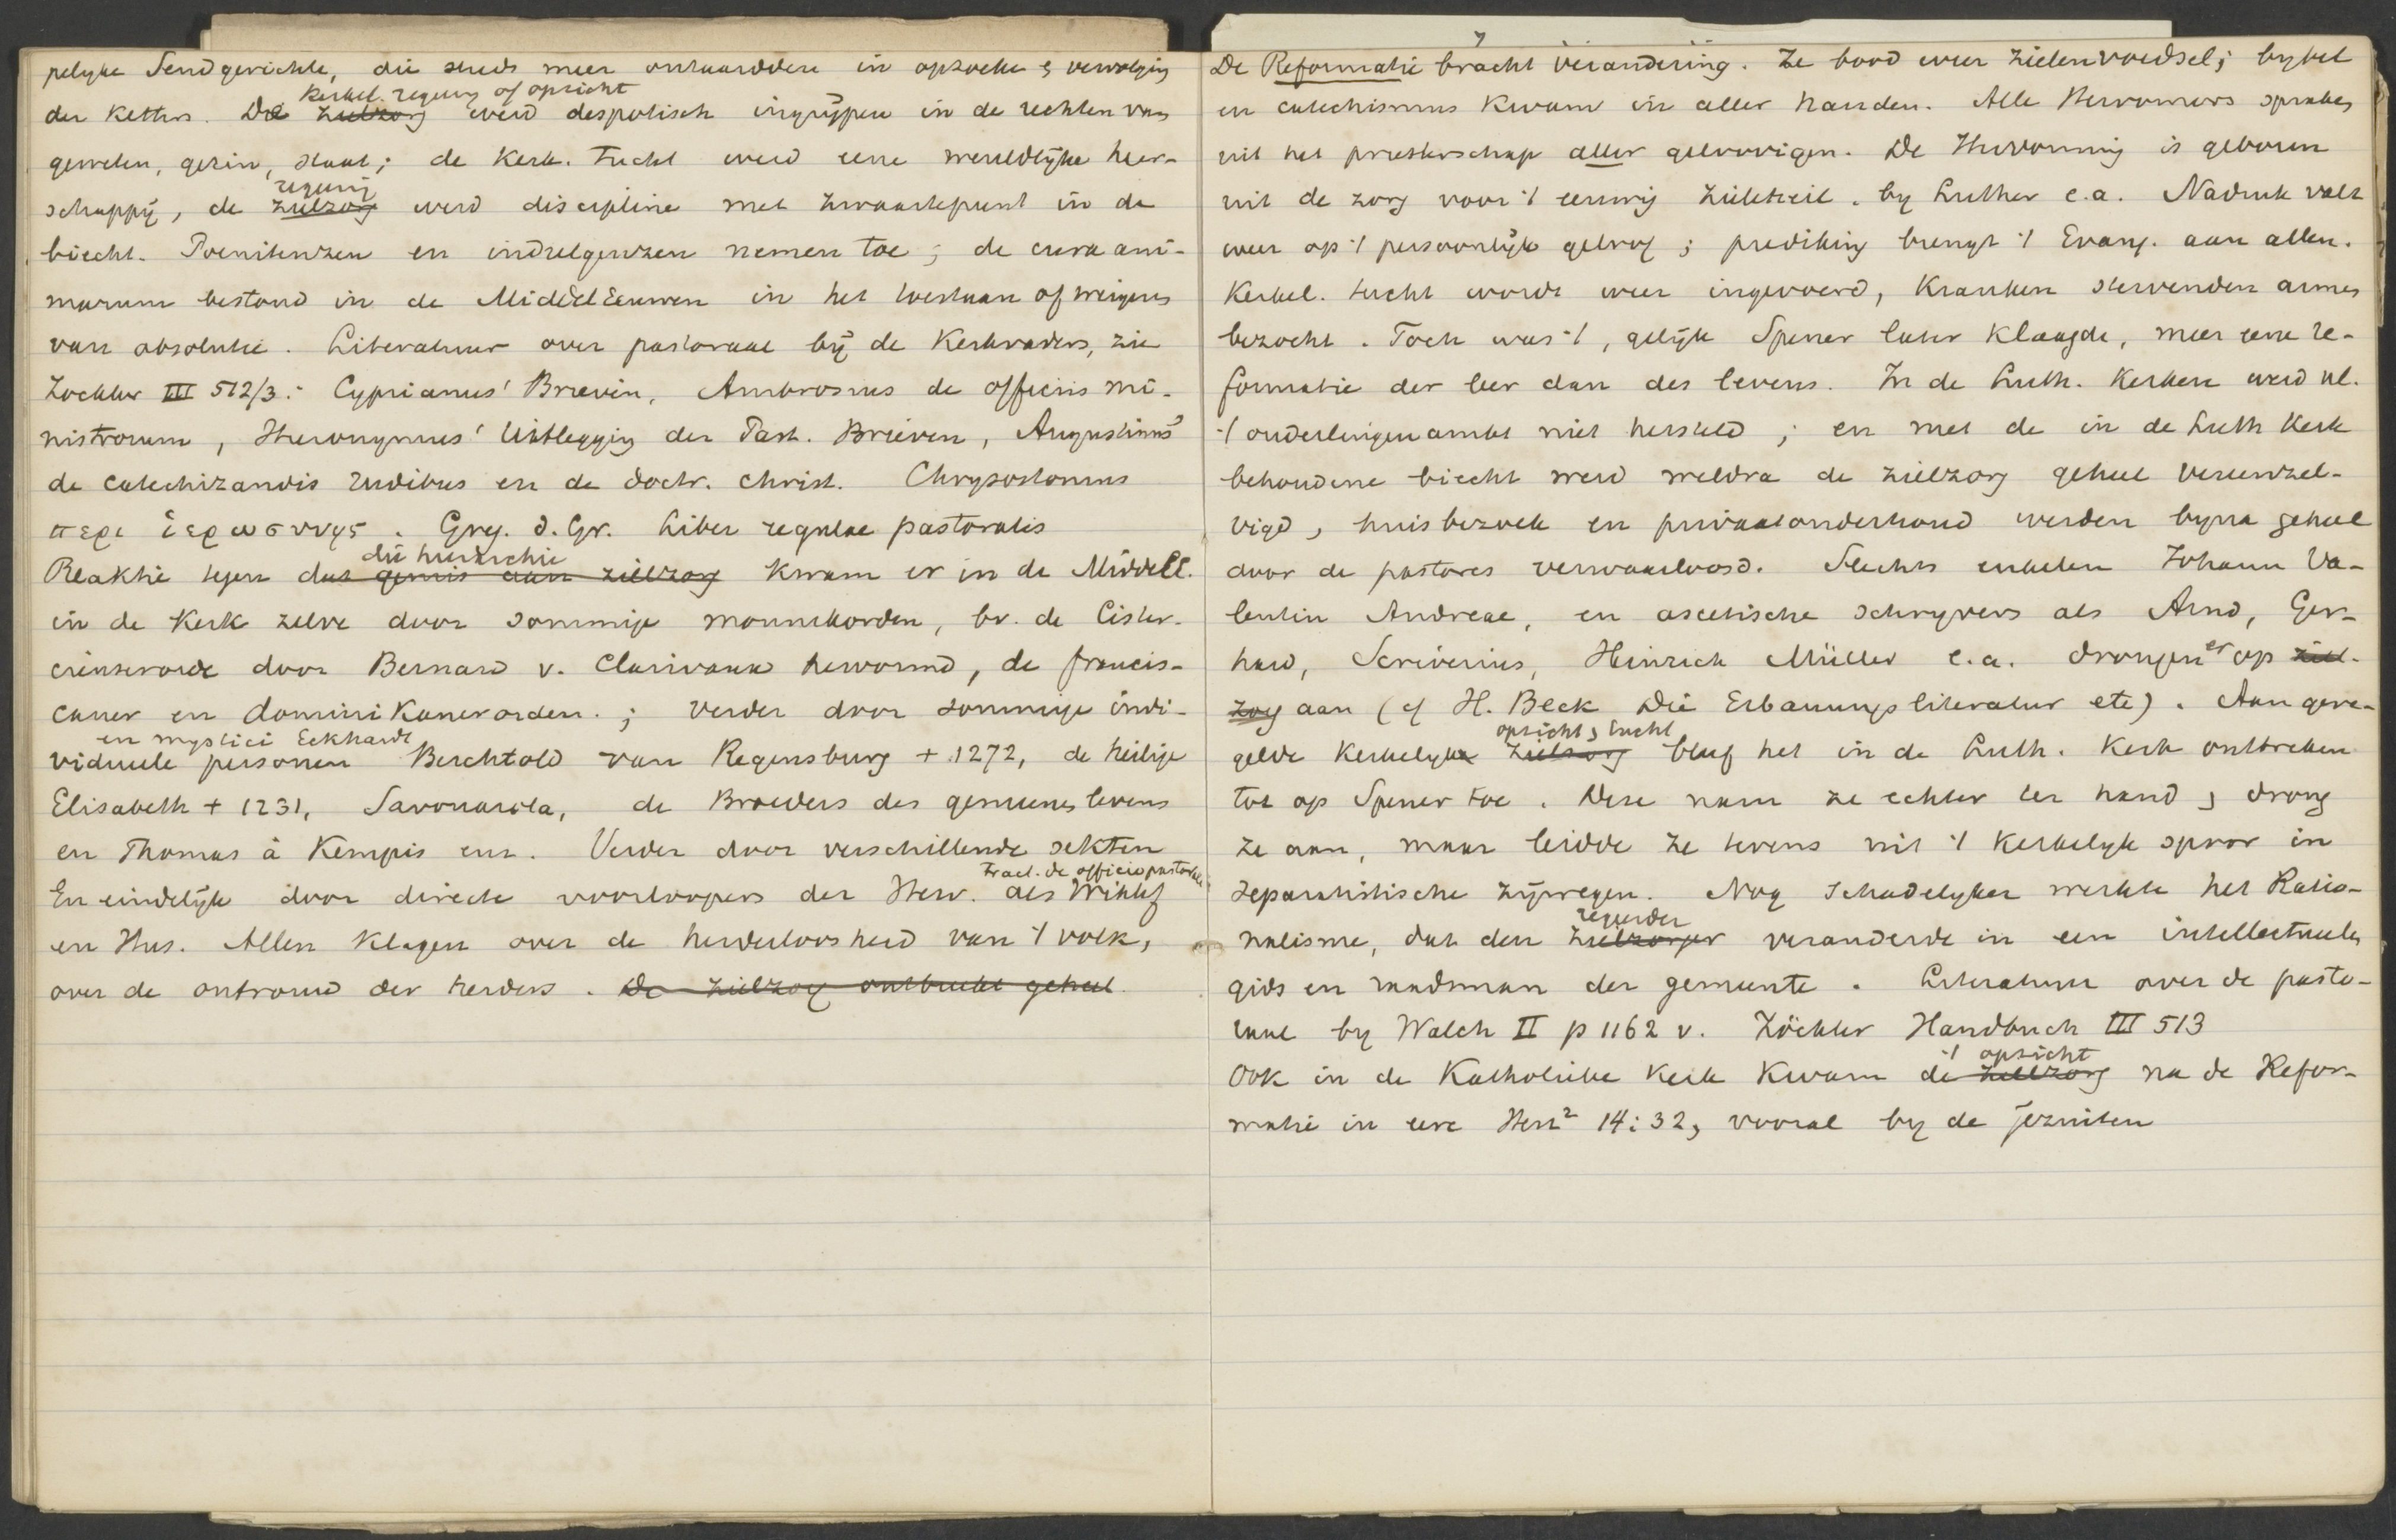 pelyke Sendgerichte, die steeds meer ontaardden in opzoeke & vervolging
kerkel. regering of opzicht
der ketters. De zielzorg werd despotisch ingrijpen in de rechten van
geweten, gezin, staat; de kerk. tucht werd eene wereldlijke heer-
regering
schappij, de zielzorg werd discipline met zwaartepunt in de
biecht. Poenitenzen en indulgenzen nemen toe; de cura ani-
marum bestond in de Middeleeuwen in het toestaan of weigeren
van absolutie. Literatuur over pastoraal bij de Kerkvaders, zie
Zöckler III 512/3: Cyprianus' Brieven, Ambrosius de officiis mi-
nistrorum, Hieronymus' Uitlegging der Past. Brieven, Augustinus'
de catechizandis rudibus en de doctr. christ. Chrysostomus
περι ἱερωσυνης. Greg. d. Gr. Liber regulae pastoralis
die hierarchie
Reaktie tegen dat gemis aan zielzorg kwam er in de Middell.
in de Kerk zelve door sommige monnikorden, bv. de Cister-
ciënserorde door Bernard v. Clairvaux hervormd, de francis-
caner en dominikanerorden.; verder door sommige indi-
en mystici Eckhardt
viduele personen Berchtold van Regensburg + 1272, de heilige
Elisabeth + 1231, Savonarola, de Broeders des gemeenes levens
en Thomas à Kempis enz. Verder door verschillende sekten
Tract. de officio pastorali
En eindelijk door directe voorloopers der Herv. als Wiklef
en Hus. Allen klagen over de herderloosheid van 't volk,
over de ontrouw der herders. De zielzorg ontbreekt geheel.
De Reformatie bracht verandering. Ze bood weer zielenvoedsel; bybel
en catechismus kwam in aller handen. Alle Hervormers spraken
uit het priesterschap aller geloovigen. De Hervorming is geboren
uit de zorg voor 't eeuwig zieleheil. by Luther e.a. Nadruk valt
weer op 't persoonlijk geloof; prediking brengt 't Evang. aan allen.
Kerkel. tucht wordt weer ingevoerd, Kranken stervenden armen
bezocht. Toch was 't, gelijk Spener later klaagde, meer eene re-
formatie der leer dan des levens. In de Luth. Kerken werd nl.
't ouderlingenambt niet hersteld; en met de in de Luth Kerk
behoudene biecht werd weldra de zielzorg geheel vereenzel-
vigd, huisbezoek en privaatonderhoud werden byna geheel
door de pastores verwaarloosd. Slechts enkelen Johann Va-
lentin Andreae, en ascetische schryvers als Arnd, Ger-
hard, Scriverius, Heinrich Müller e.a. drongen er op ziel-
zorg aan (cf H. Beck Die Erbauungsliteratur etc). Aan gere-
opzicht & tucht
gelde kerkelyke zielzorg bleef het in de Luth. Kerk ontbreken
tot op Spener toe. Deze nam ze echter ter hand & drong
ze aan, maar leidde ze tevens uit 't kerkelyk spoor in
separatistische zijwegen. Nog schadelyker werkte het Ratio-
regeerder
nalisme, dat den zielzorger veranderde in een intellectueelen
gids en raadsman der gemeente. Literatuur over de pasto-
raal by Walch II p 1162 v. Zöckler Handbuch III 513
't opzicht
Ook in de Katholieke Kerk kwam de zielzorg na de Refor-
matie in eere Herz² 14:32, vooral by de jezuiten